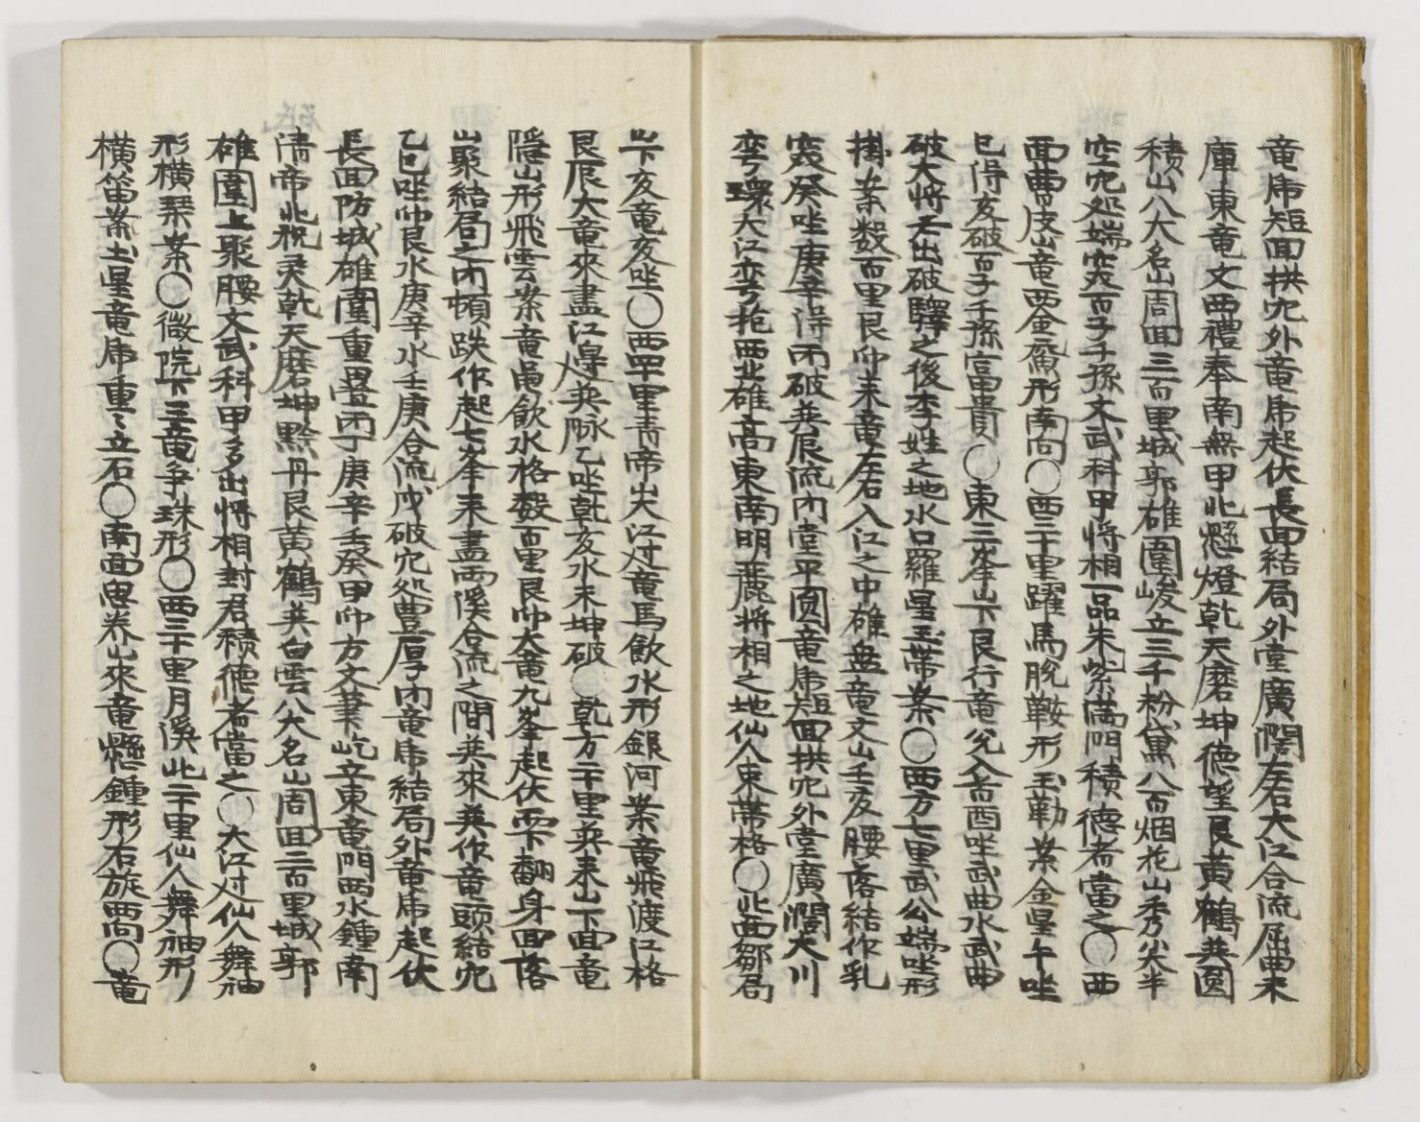 竜席短面拱穴外竜席起伏長面結局外堂廣濶左右大江合流屈曲来
庫東竜文西禮奉南無甲北懸燈乾天磨坤德望艮黄鶴英圓
積山八大名山周回三百里城郭雄圍峻立三千粉黛八百烟花山秀尖半
空穴処端突百子千孫文武科甲将相一品朱紫満門積德者當之〇西
面曹皮山竜西金形南向〇西二十里躍馬脫鞍形玉勒案金星午坐
巳得亥破百子千孫富貴〇東三峯山下艮行竜兌入首酉坐武曲水武曲
破大将去出破驛之後李姓之地水口羅星玉帶案〇西方七里武公端坐形
掛案数百里艮卯来竜左右入江之中雄盤竜文山壬亥腰落結作乳
突癸坐庚辛得丙破英辰流内堂平圓竜席短面拱穴外堂廣濶大川
弯環大江弯抱西北雄高東南明麗将相之地仙人束帶格〇北面鄒局
山下亥竜亥坐〇西四十里青帝山大江过竜馬飲水形銀河案竜飛渡江格
艮辰大竜來盡江英脉乙坐乾亥水未坤破〇乾方二十里英来山下面竜
隱山形飛雲案竜飲水格数百里艮卯大竜九峯起伏雫下翻身面落
山聚結局之内頓跌作起七峯来盡両溪合流之間英來英作竜頭結穴
乙巳坐卯艮水庚辛水壬庚合流戌破穴処豊厚内竜席結局外竜席起伏
長面防城雄圍重疊丙丁庚辛壬癸甲卯方文筆屹立東竜門西水鍾南
清帝北祝灵乾天磨坤黙丹艮黄鶴英白雲八大名山周回二百里城郭
雄圍上聚腰文武科甲多出将相封君積德者當之〇大江过仙人舞袖
形橫琴案〇微院下三竜争珠形〇西三十里月溪北二十里仙人舞袖形
橫笛案土星竜席重〻立石〇南面思养山來竜懸鍾形石旋西向〇竜